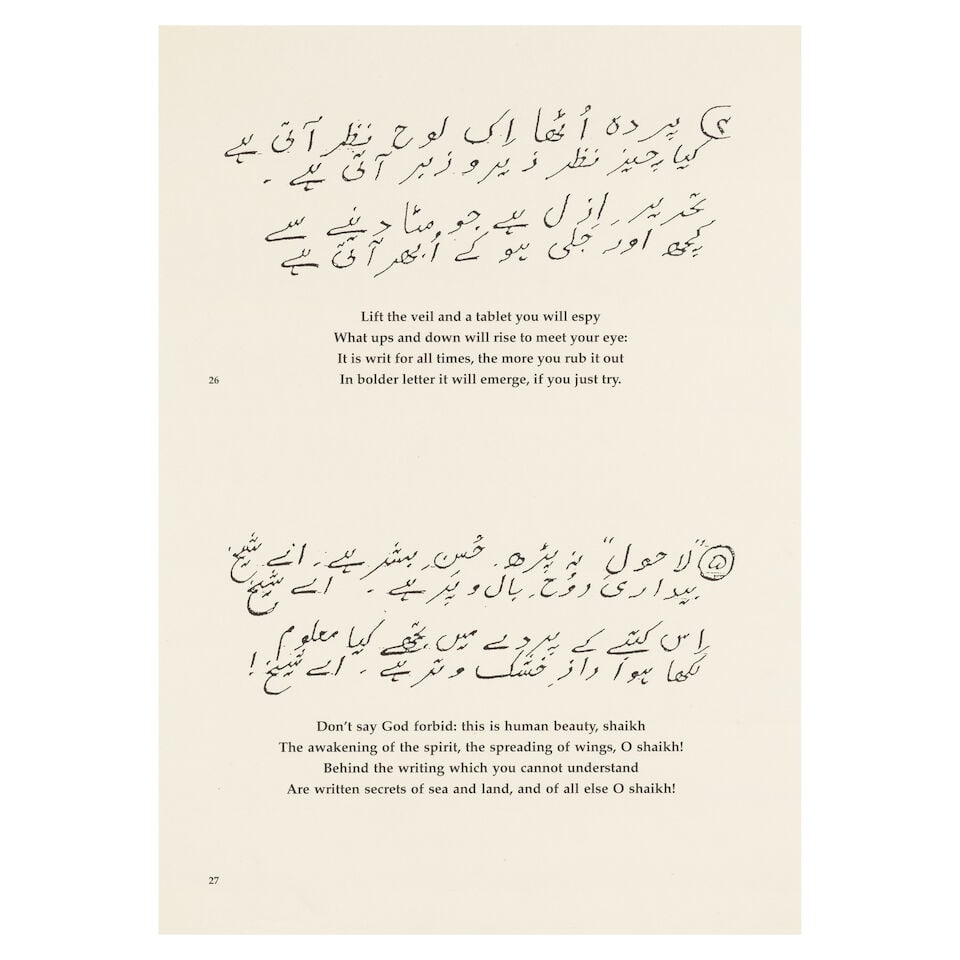 ۴ پردہ اُٹھا اِک لوح نظر آتی ہے
کیا چیز نظر زیر و زبر آتی ہے ۔
تحریرِ ازل ہے جو مٹا دینے سے
کچھ اور جَلی ہو کے اُبھر آتی ہے
Lift the veil and a tablet you will espy
What ups and down will rise to meet your eye:
It is writ for all times, the more you rub it out
26
In bolder letter it will emerge, if you just try.
۵ "لاحول" نہ پڑھ حُسنِ بشر ہے ۔ اے شیخ
بیداریِ روُح بال و پَر ہے ۔ اے شیخ
اِس کتبے کے پردے میں تجھے کیا معلوم
لکھا ہوا رازِ خشک و تر ہے ۔ اے شیخ !
Don't say God forbid: this is human beauty, shaikh
The awakening of the spirit, the spreading of wings, O shaikh!
Behind the writing which you cannot understand
Are written secrets of sea and land, and of all else O shaikh!
27